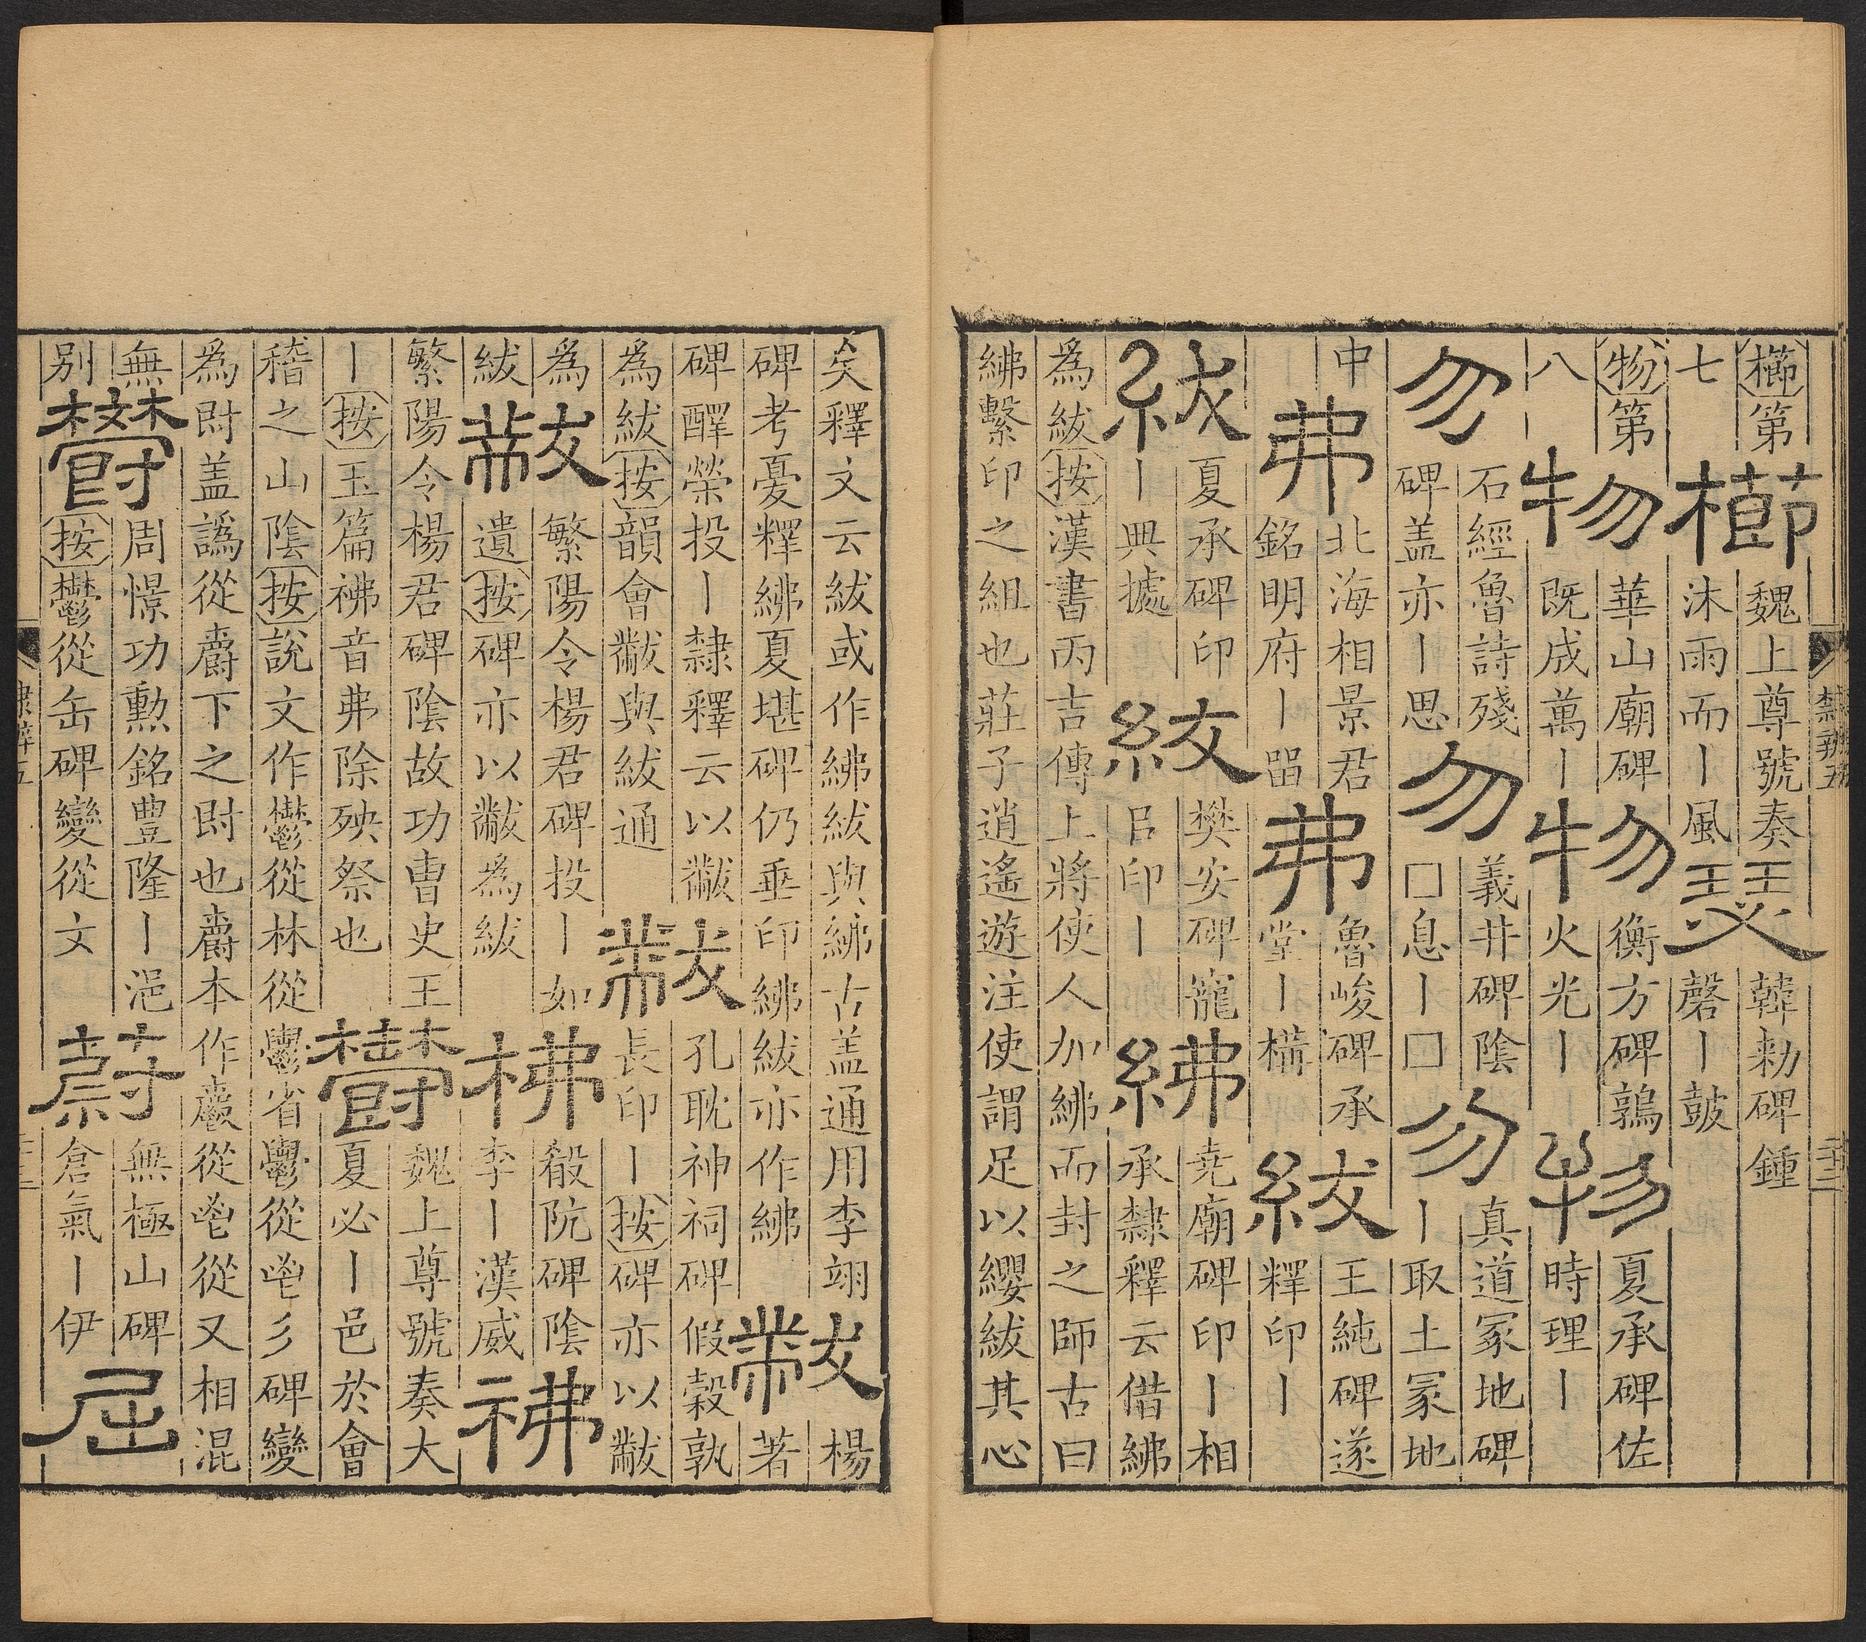 櫛第櫛魏上尊號奏瑟韓勑碑鍾
七沐雨而丨風磬丨鼓
物第物華山廟碑物衡方碑鶉物夏承碑佐
八既成萬丨火光丨時理丨
勿石經魯詩殘勿義井碑陰勿真道冢地碑
碑盖亦丨思□息丨□丨取土冢地
中弗北海相景君弗魯峻碑承紱王純碑遂
銘明府丨㽞堂丨構釋印丨
紱夏承碑印紱樊安碑寵紼尭廟碑印丨相
丨典據㠯印丨承隸釋云借紼
為紱按漢書丙吉傳上將使人加紼而封之師古曰
紼繫印之組也莊子逍遙遊注使謂足以纓紱其心
隸辨五
矣釋文云紱或作紼紱與紼古盖通用李翊黻楊
碑考憂釋紼夏堪碑仍垂印紼紱亦作紼著
碑醳榮投丨隸釋云以黻黻孔耽神祠碑假穀孰
為紱按韻會黻與紱通長印丨按碑亦以黻
為黻繁陽令楊君碑投丨如柫殽阬碑陰
紱遺按碑亦以黻為紱李丨漢威
繁陽令楊君碑陰故功曹史王鬱魏上尊號奏大
丨按玉篇音弗除殃祭也夏必丨邑於會
稽之山陰按說文作鬱從林從鬱省鬱從鬯彡碑變
為盖譌從爵下之也爵本作從鬯從又相混
無鬱周憬功勲銘豊隆丨浥蔚無極山碑屈
别按鬱從缶碑變從文倉氣丨伊
隸辨五